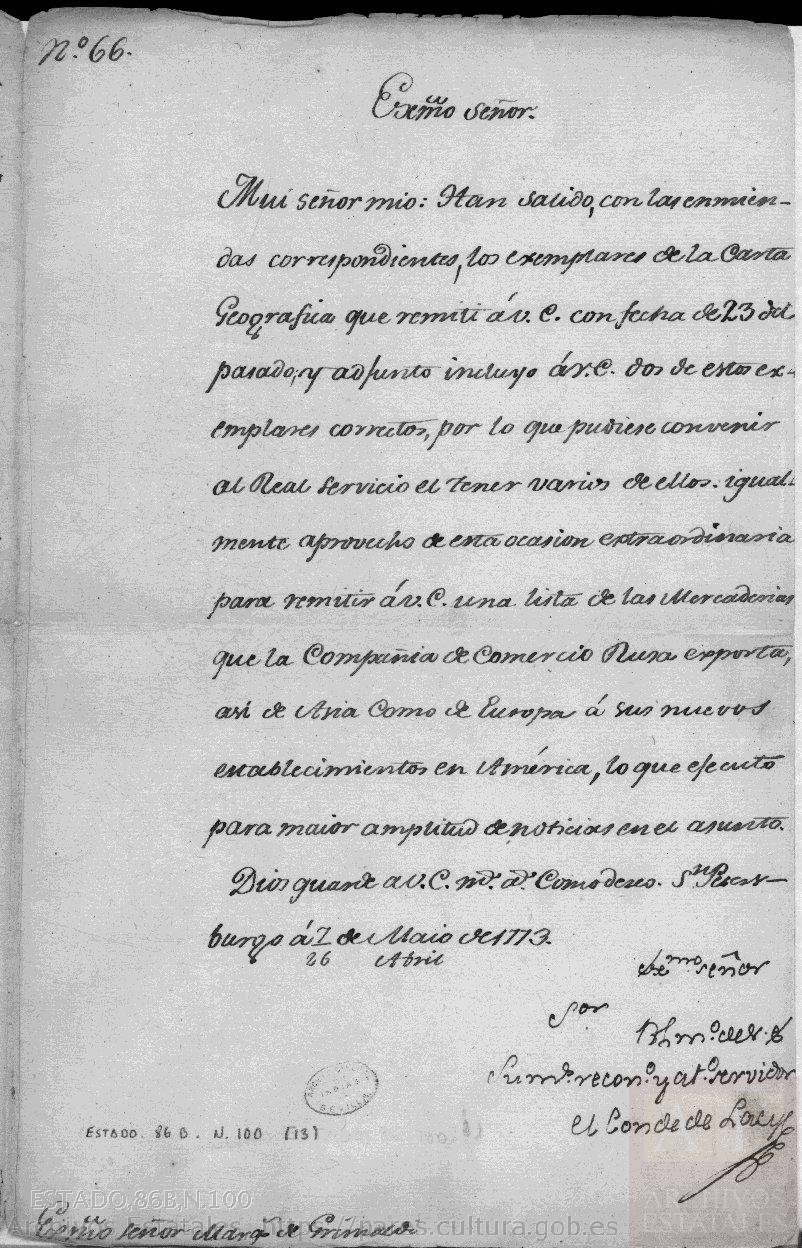 N.º 66.
Exmõ Señor.
Mui señor mio: Han salido, con las enmien-
das correspondientes, los exemplares de la Carta
Geografica que remiti á V. E. con fecha de 23 del
pasado; y adjunto incluyo á V. E. dos de estos ex-
emplares correctos, por lo que pudiese convenir
al Real servicio el tener varios de ellos. igual-
mente aprovecho de esta ocasion extraordinaria
para remitir á V. E. una lista de las Mercaderias
que la Compañia de Comercio Rusa exporta,
asi de Asia como de Europa á sus nuevos
establecimientos en América, lo que ejecuto
para maior amplitud de noticias en el asunto.
Dios guarde a V. E. m.s a.s Como deseo. S.n Peters-
burgo á 7 de Maio de 1773.
26 Abril
Exmo señor
Sor
B l m.o de V. E
Su m.s recon.o y at.o servidor
el Conde de Lacy
ESTADO. 86 B. N. 100 (13)
ESTADO,86B,N.100
Archivos Estatales, https://pares.cultura.gob.es
ARCHIVOS
ESTATALES
Exmõ señor Marq.s de Grimaldi